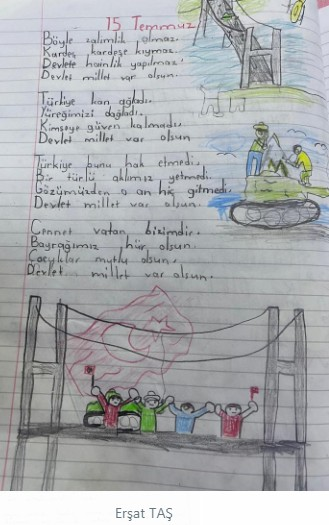 15 Temmuz
Böyle zalimlik olmaz.
Kardeş kardeşe kıymaz.
Devlete hainlik yapılmaz!
Devlet millet var olsun.
Türkiye kan ağladı.
Yüreğimizi dağladı.
Kimseye güven kalmadı.
Devlet millet var olsun
Türkiye bunu hak etmedi.
Bir türlü aklımız yetmedi.
Gözümüzden o an hiç gitmedi.
Devlet millet var olsun.
Cennet vatan bizimdir.
Bayrağımız hür olsun.
Çocuklar mutlu olsun.
Devlet millet var olsun.
Erşat TAŞ